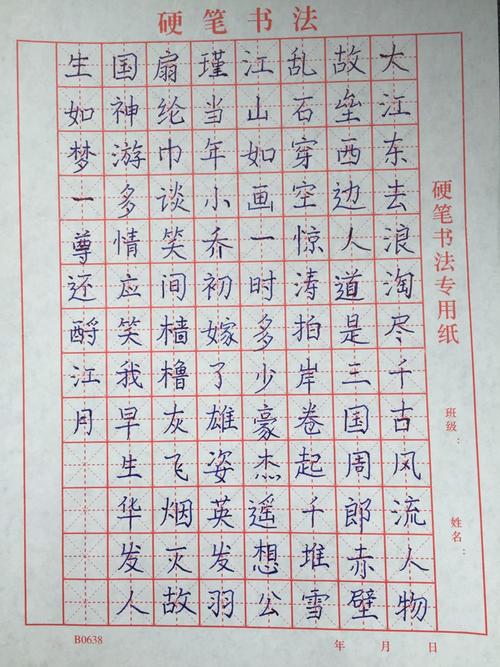 硬笔书法
硬笔书法专用纸
班级：
姓名：
大江东去浪淘尽千古风流人物
故垒西边人道是三国周郎赤壁
乱石穿空惊涛拍岸卷起千堆雪
江山如画一时多少豪杰遥想公
瑾当年小乔初嫁了雄姿英发羽
扇纶巾谈笑间樯橹灰飞烟灭故
国神游多情应笑我早生华发人
生如梦一尊还酹江月
B0638
年 月 日